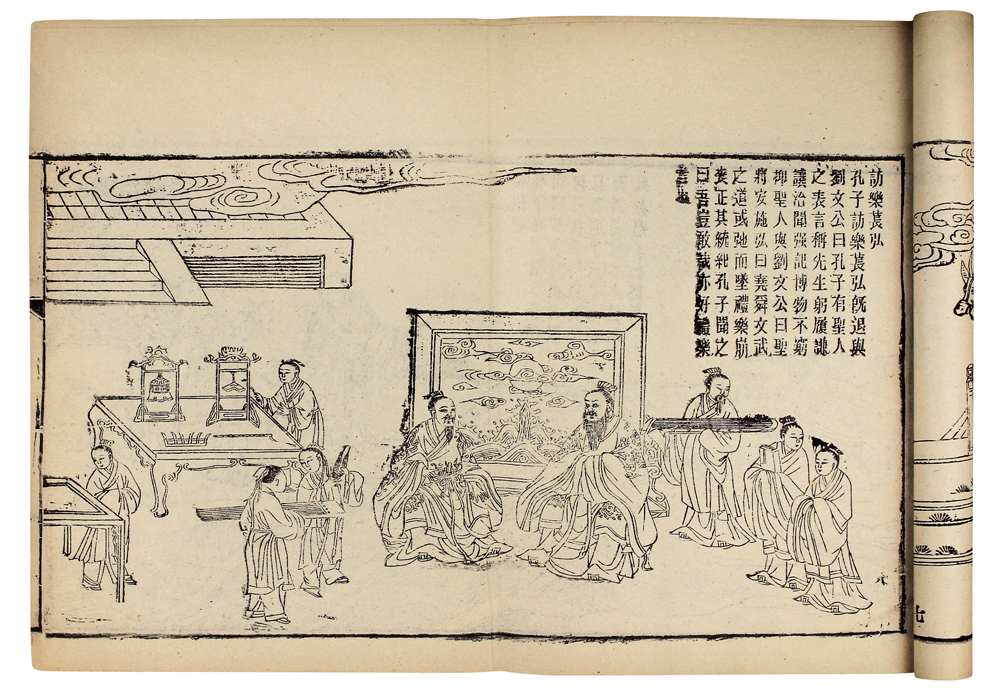 訪樂萇弘
孔子訪樂萇弘旣退與
劉文公曰孔子有聖人
之表言稱先生躬履謙
讓洽聞强記博物不窮
抑聖人與劉文公曰聖
將安施弘曰堯舜文武
之道或弛而墜禮樂崩
喪正其統紀孔子聞之
曰吾豈敢哉亦好禮樂
七